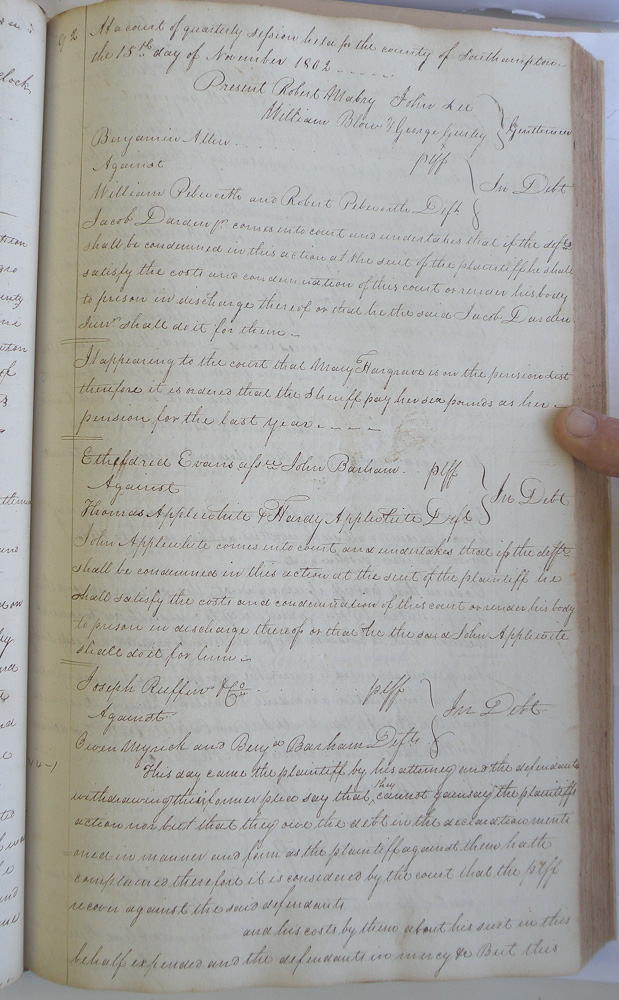 92
At a court of quarterly session held for the county of Southampton
the 15th day of November 1802 - - - - -
Present Robert Mabry John Lee
William Blow & George Gurley } Gentlemen
Benjamin Allen . . . plff
Against } In Debt
William Pebworth and Robert Pebworth Defts
Jacob Darden jr comes into court and undertakes that if the defts
shall be condemned in this action at the suit of the plaintiff he shall
satisfy the costs and condemnation of this court or render his body
to prison in discharge thereof or that he the said Jacob Darden
Junr shall do it for them -
It appearing to the court that Mary Hargrave is on the pension list
therefore it is ordered that the Sheriff pay her six pounds as her
pension for the last year - - - -
Etheldred Evans asse John Barham . . plff
Against } In Debt
Thomas Applewhite & Hardy Applewhite Defts
John Applewhite comes into court and undertakes that if the defft
shall be condemned in this action at the suit of the plaintiff he
shall satisfy the costs and condemnation of this court or render his body
to prison in discharge thereof or that he the said John Applewite
shall do it for him -
Joseph Ruffin & Co . . . . plff
Against } In Debt
Owen Myrick and Benja Barham Defts
This day came the plaintiff by his attorney and the defendants
withdrawing their former plea say that they cannot gainsay the plaintiffs
action nor but that they owe the debt in the declaration menti
oned in manner and form as the plaintiff against them hath
complained therefore it is considered by the court that the plff
recover against the said defendants
and his costs by them about his suit in this
behalf expended and the defendants in mercy &c But this